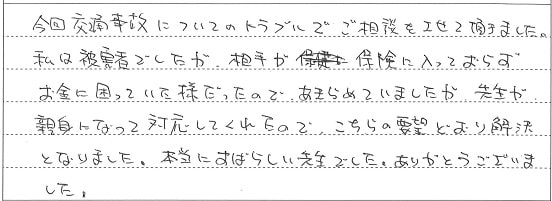 今回交通事故についてのトラブルでご相談をさせて頂きました。
私は被害者でしたが、相手が保険に入っておらず
お金に困っていた様だったので、あきらめていましたが、先生が、
親身になって対応してくれたので、こちらの要望どおり解決
となりました。本当にすばらしい先生でした。ありがとうございま
した。